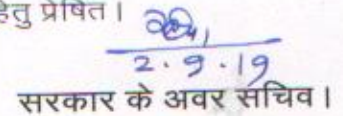 हेतु प्रेषित।
2.9.19
सरकार के अवर सचिव।